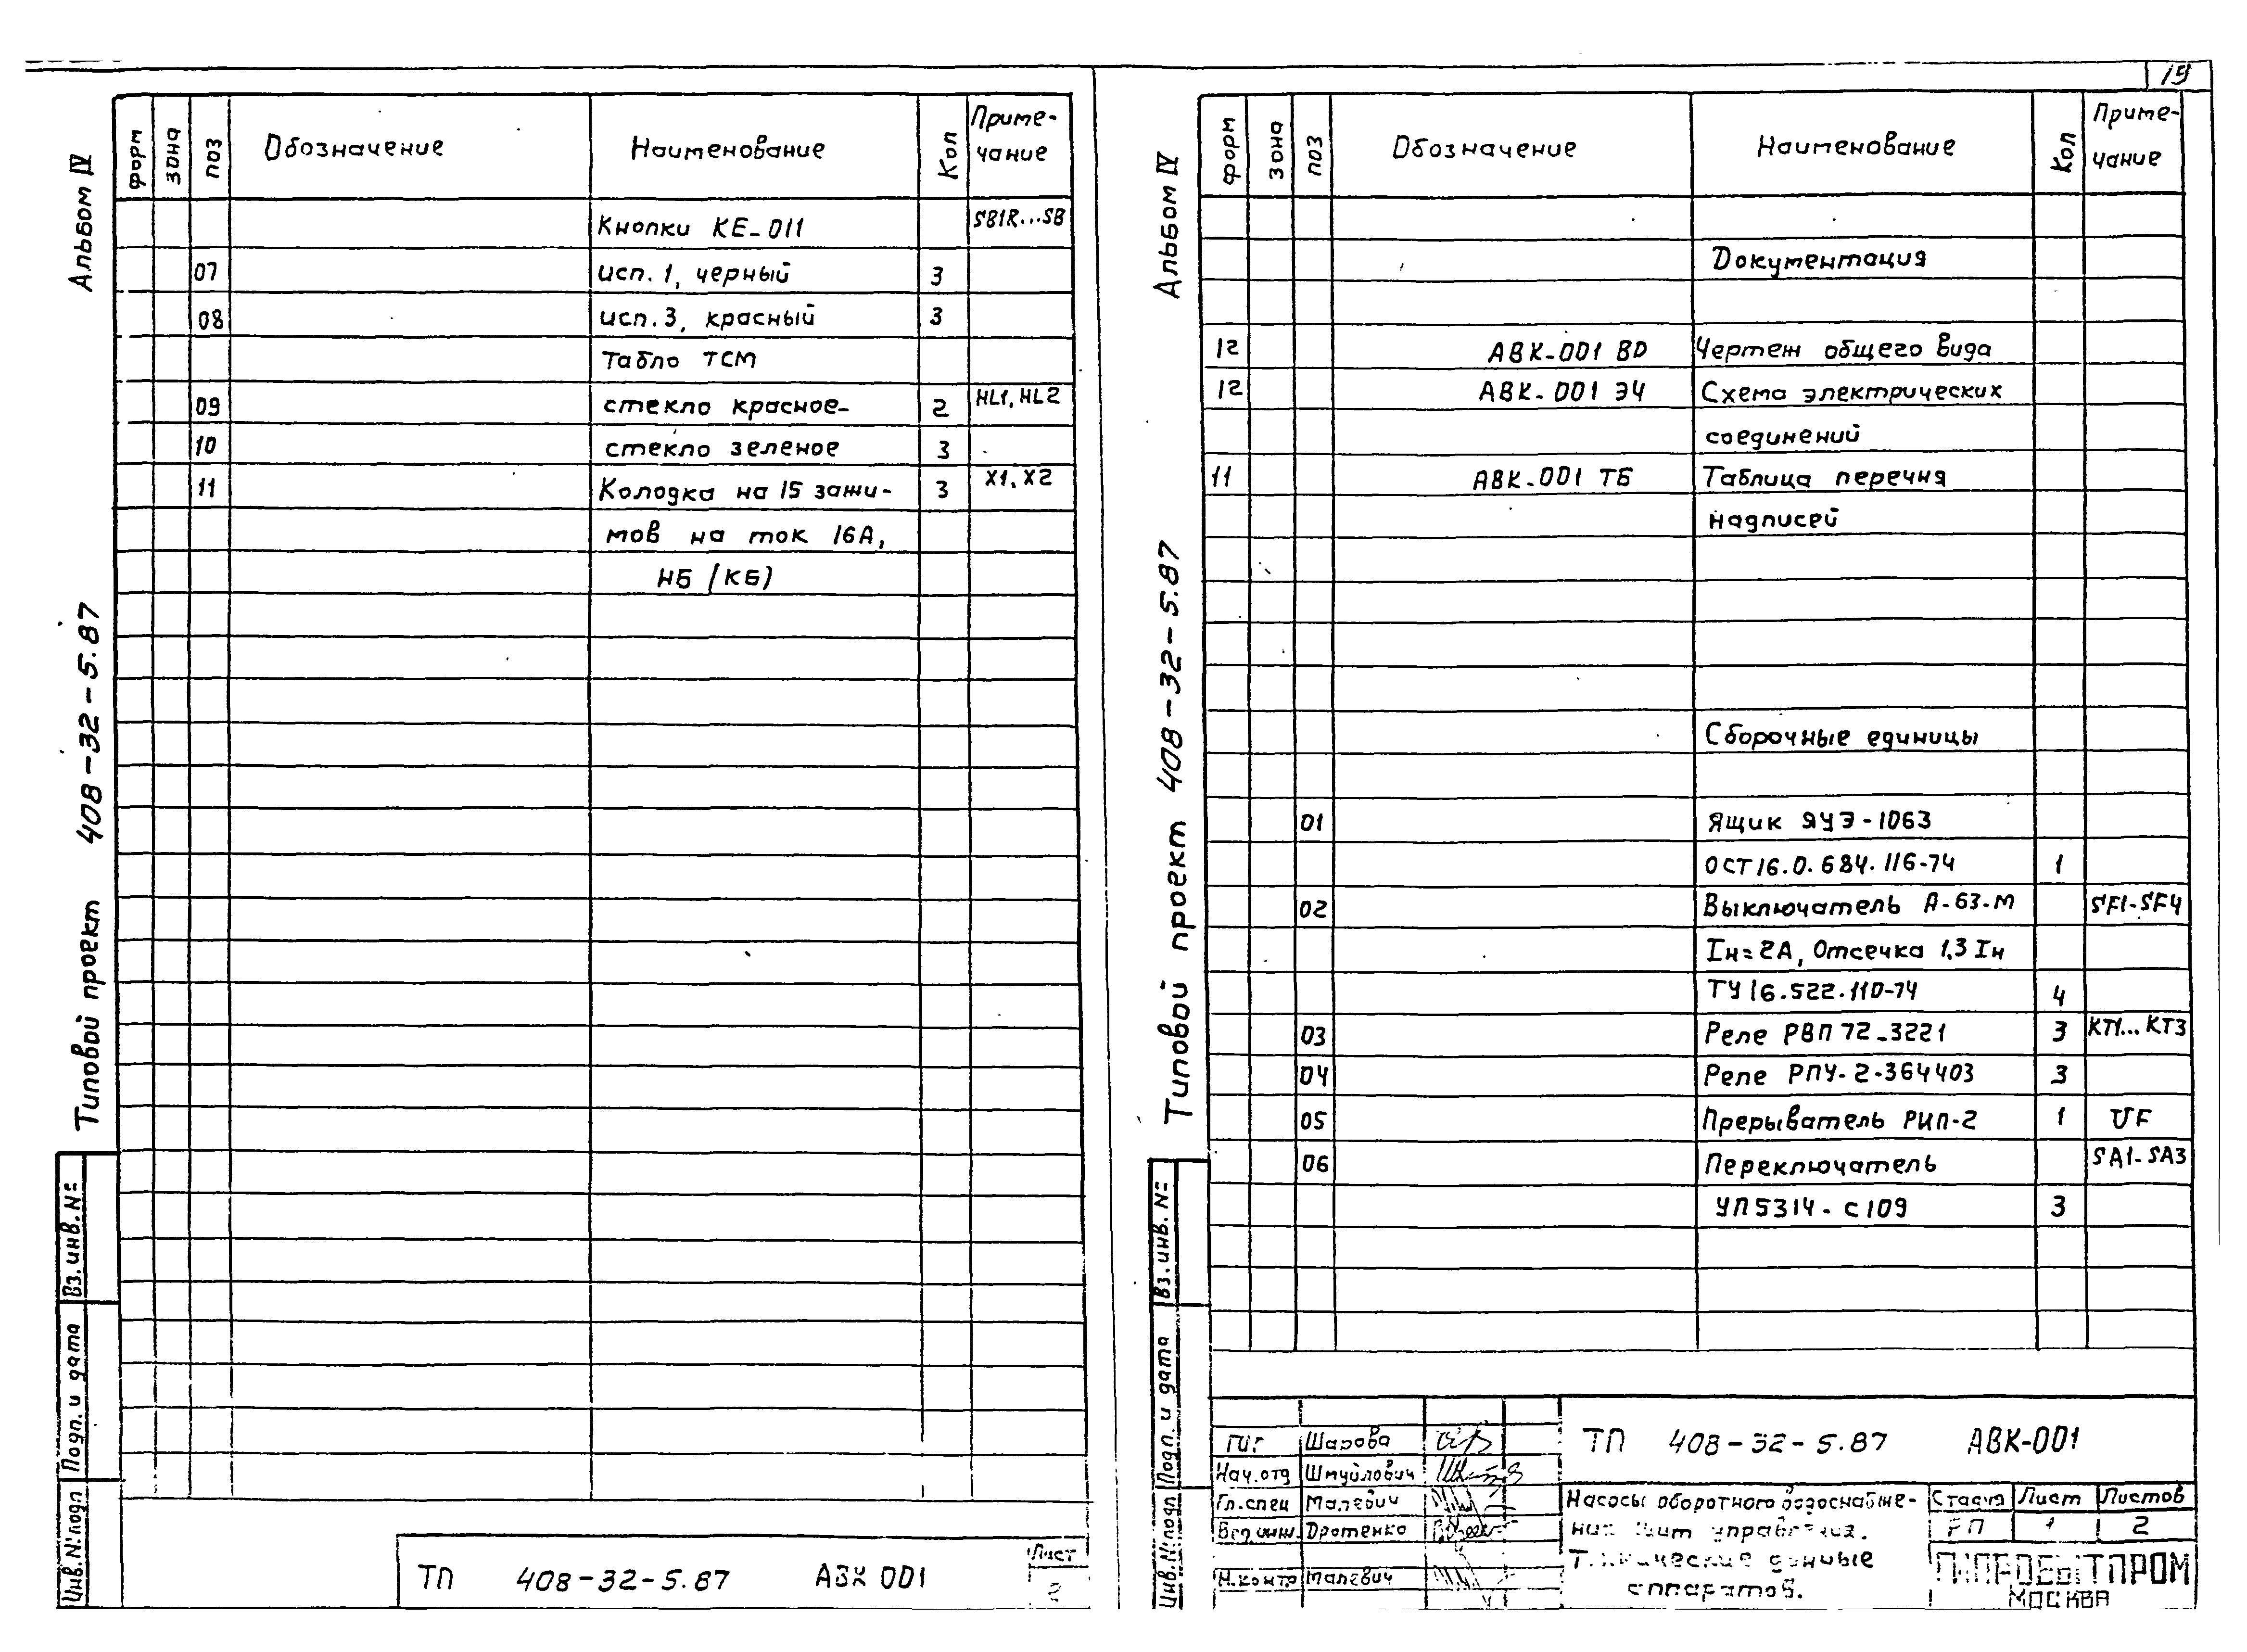 19
Альбом IV
Типовой проект 408-32-5.87
форм зона поз Обозначение Наименование Кол Приме-
чание
Кнопки КЕ-011 SB1R...SB
07 исп. 1, черный 3
08 исп. 3, красный 3
Табло ТСМ
09 стекло красное- 2 HL1, HL2
10 стекло зеленое 3
11 Колодка на 15 зажи- 3 X1, X2
мов на ток 16А,
НБ (КБ)
Вз. инв. №
Подп. и дата
Инв. № подл
ТП 408-32-5.87 АВК 001
Лист
2
Альбом IV
Типовой проект 408-32-5.87
форм зона поз Обозначение Наименование Кол Приме-
чание
Документация
12 АВК-001 ВО Чертеж общего вида
12 АВК-001 Э4 Схема электрических
соединений
11 АВК-001 ТБ Таблица перечня
надписей
Сборочные единицы
01 Ящик ЯУЭ-1063
ОСТ16.0.684.116-74 1
02 Выключатель А-63-М SF1-SF4
Iн=2А, Отсечка 1,3 Iн
ТУ16.522.110-74 4
03 Реле РВП 72-3221 3 КТ1...КТ3
04 Реле РПУ-2-364403 3
05 Прерыватель РИП-2 1 UF
06 Переключатель SA1-SA3
УП5314-С109 3
Вз. инв. №
Подп. и дата
Инв. № подл
ГИП Шарова
Нач.отд Шмуйлович
Гл.спец Малевич
Вед.инж. Дротенко
Н.контр Малевич
ТП 408-32-5.87 АВК-001
Насосы оборотного водоснабже-
ния Щит управления.
Технические данные
аппаратов.
Стадия Лист Листов
РП 1 2
ГИПРОБЫТПРОМ
МОСКВА